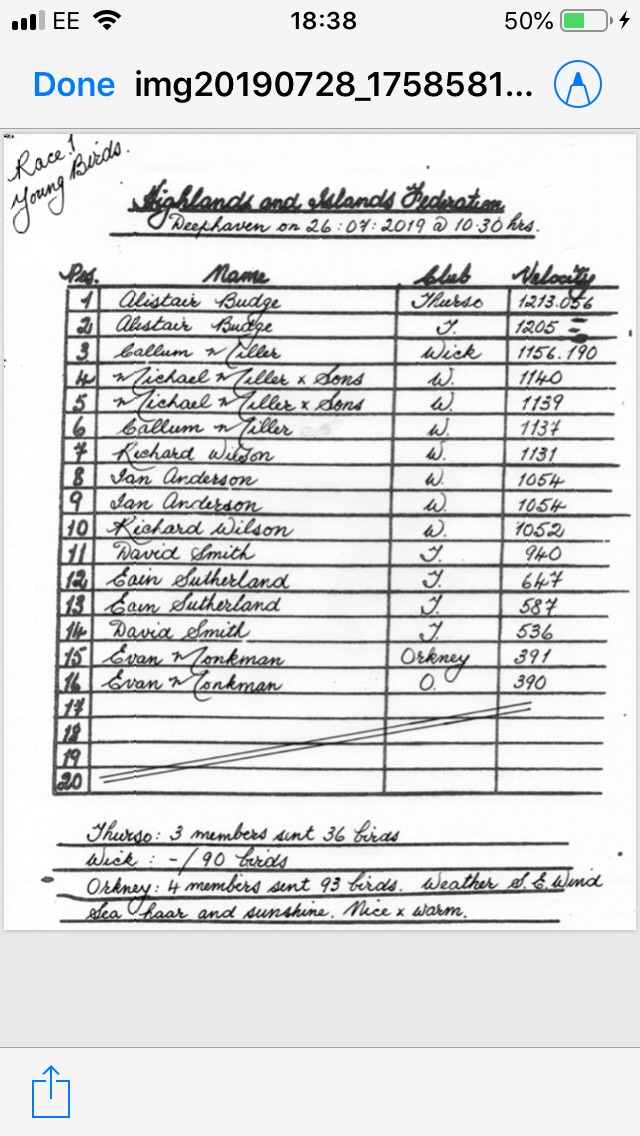 EE 18:38 50%
Done img20190728_1758581...
Race 1
Young Birds.
Highlands and Islands Federation
Deephaven on 26:07:2019 @ 10:30 hrs.
Pos. Name Club Velocity
1 Alistair Budge Thurso 1213.056
2 Alistair Budge T. 1205
3 Callum Miller Wick 1156.190
4 Michael Miller x Sons W. 1140
5 Michael Miller x Sons W. 1139
6 Callum Miller W. 1137
7 Richard Wilson W. 1131
8 Ian Anderson W. 1054
9 Ian Anderson W. 1054
10 Richard Wilson W. 1052
11 David Smith T. 940
12 Eain Sutherland T. 647
13 Eain Sutherland T. 587
14 David Smith T. 536
15 Evan Monkman Orkney 391
16 Evan Monkman O. 390
17
18
19
20
Thurso: 3 members sent 36 birds
Wick : -/90 birds
Orkney: 4 members sent 93 birds. Weather S.E. Wind
Sea haar and sunshine. Nice x warm.